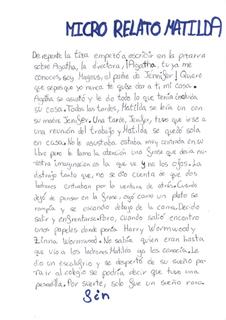 MICRO RELATO MATILDA
De repente la tiza empezó a escribir en la pizarra
sobre Agatha, la directora, ¡Agatha, tu ya me
conoces soy Magnus, el padre de Jennifer! Quiere
que sepas que yo nunca te quise dar a ti mi casa.
Agatha se asustó y le dio todo lo que tenía
su casa. Todas las tardes, Matilda se leía un con
su madre Jenifer. Una tarde, Jenifer, tuvo que irse a
una reunión del trabajo y Matilda se quedó sola
en casa. No le asustaba estaba muy centrada en su
libro pero le llamo la atención una Sirena que daba a
nuestra imaginación en la que ve y no los ojos. La
distrajo tanto que, no se dio cuenta de que dos
ladrones entraban por la ventana de atrás. Cuando
dejó de pensar en la Sirena, oyó como un plato se
rompía y se escondió debajo de la cama. Decidió
salir y enfrentarse. Pero, cuando salió encontro
unos papeles donde ponía Harry Wormwood y
Zinnia Wormwood. No sabía quien eran hasta
que vio a los ladrones Matilda ya los conocía. Le
dio un escalofrío y se despertó de su sueño pa-
ra ir al colegio se podría decir que tuvo una
pesadilla. Por suerte, solo fue un sueño raro.
Fin